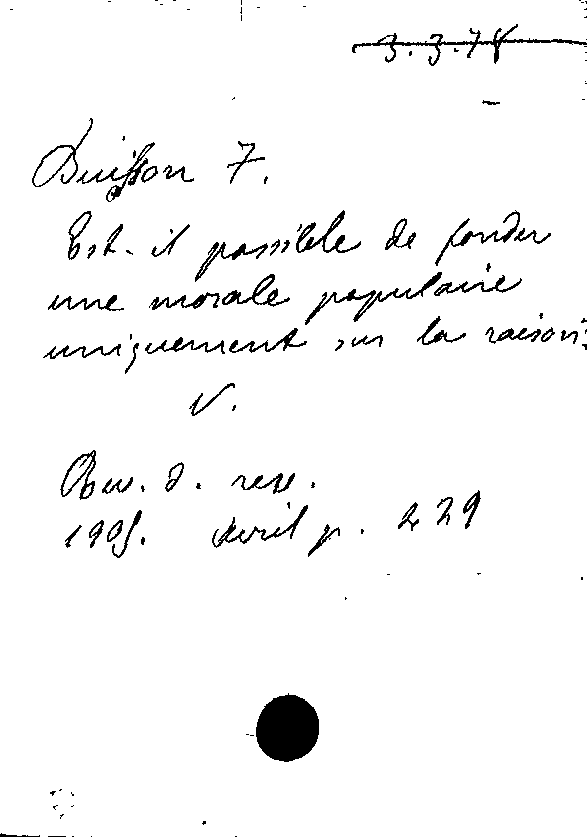 3.3.78
Buisson F.
Est-il possible de fonder
une morale populaire
uniquement sur la raison?
V.
Rev. d. rev.
1905. Avril p. 229